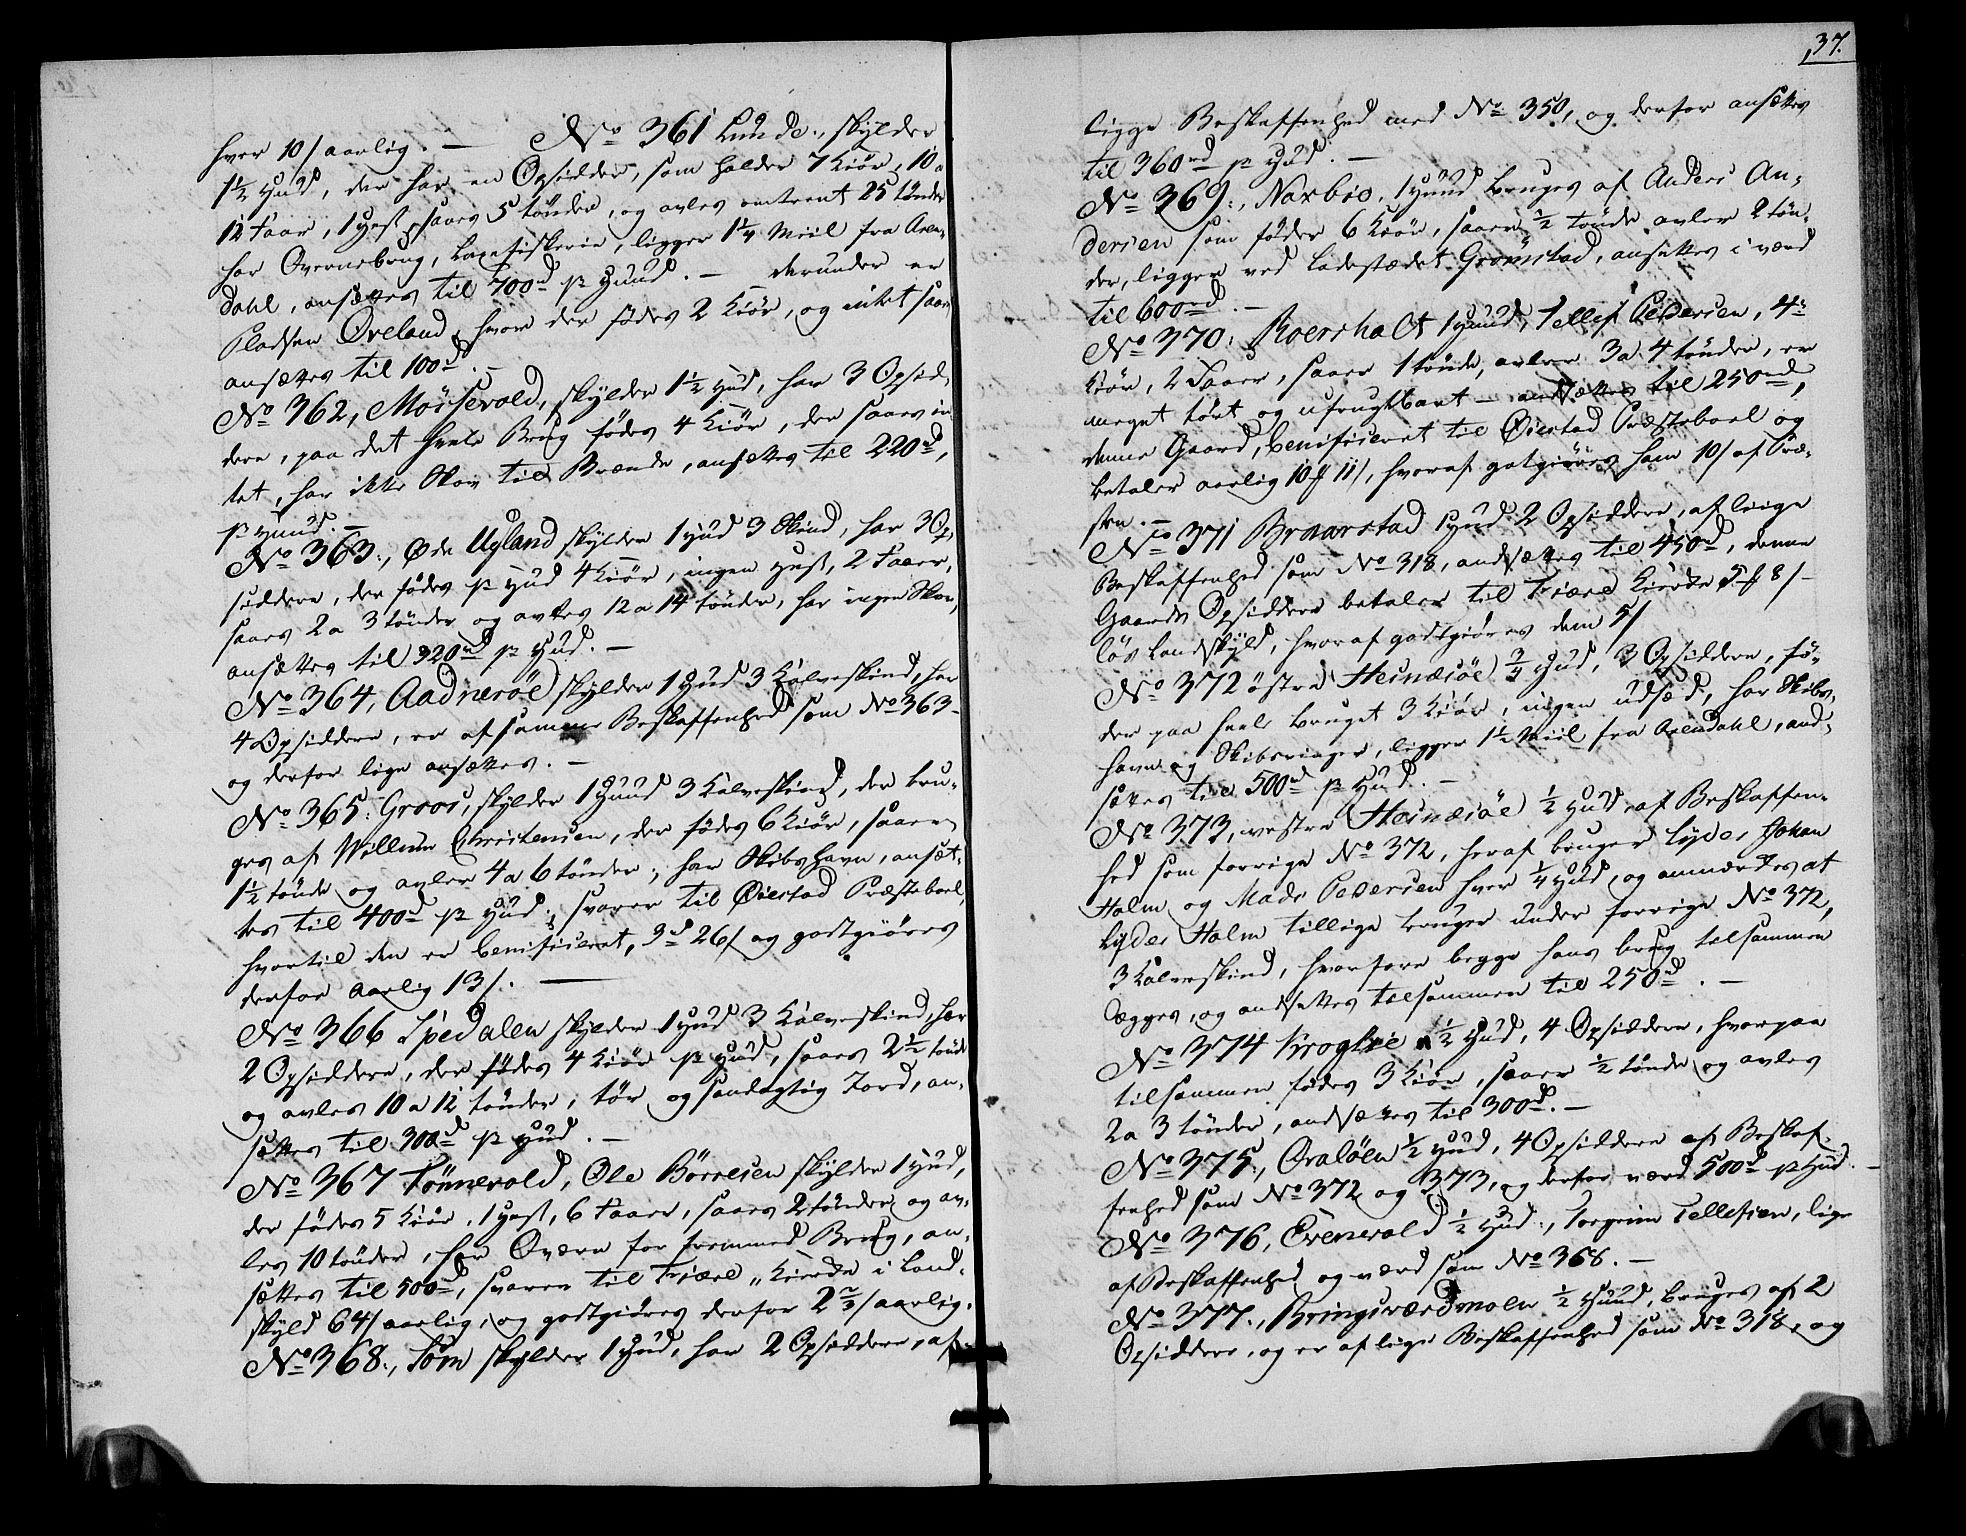 hver 10 s aarlig. — No 361 Lunde, skylder
1½ Hud, der har en Opsidder, som holder 7 Kiör, 10 a
12 Faar, 1 Hest, saaes 5 tönder, og avles omtrent 25 tönder
har Qvernebrug, Laxefiskerie, ligger 1¼ Miil fra Aren-
dahl, ansættes til 700rd pr Huud. — derunder er
Pladsen Öveland, hvor der födes 2 Kiör, og intet saaes
ansættes til 100rd. —
No 362, Morsevold, skylder 1½ Hud, har 3 Opsid-
dere, paa det heele Brug födes 4 Kiör, der saaes in-
tet, har ikke Skov til Brænde, ansættes til 220rd,
pr Huud. —
No 363., Öde Ugland skylder 1 Hud 3 Skind, har 3 Op-
siddere, der födes pr Hud 4 Kiör, ingen Hest, 2 Faaer,
saaes 2 a 3 tönder og avles 12 a 14 tönder, har ingen Skov,
ansættes til 320rd pr Hud. —
No 364, Aadneröe skylder 1 Hud 3 Kalveskind, har
4 Opsiddere, er af samme Beskaffenhed som No 363 —
og derfor lige ansættes. —
No 365. Groos, skylder 1 Huud 3 Kalveskind, der bru-
ges af Willum Christensen, der födes 6 Kiör, saaer
1½ tönde og avler 4 a 6 tönder, har Skibshavn, ansæt-
tes til 400rd pr Hud, svarer til Öiestad Præsteboel,
hvortil den er benificeret, 3rd 26 s og godtgiöres
derfor aarlig 13 s. —
No 366 Spedalen skylder 1 Hud 3 Kalveskind, har
2 Opsiddere, der födes 4 Kiör pr Hud, saaes 2½ tönde
og avles 10 a 12 tönder, tör og sandagtig Jord, an-
sættes til 300rd pr Hud. —
No 367 Tönnevold, Ole Börresen skylder 1 Hud,
der födes 5 Kiör, 1 Hest, 6 Faaer, saaes 2 tönder og av-
les 10 tönder, har Qværn for fremmed Brug, an-
sættes til 500rd, svarer til Fiære Kierke i Land-
skyld 64 s aarlig, og godtgiöres derfor 2⅔ s aarlig.
No 368., Söm skylder 1 Hud, har 2 Opsiddere, af
37.
lige Beskaffenhed med No 350, og derfor ansættes
til 360rd pr Hud. —
No 369., Naxbio, 1 Huud bruges af Anders An-
dersen som föder 6 Kiör, saaer ½ tönde avler 2 tön-
der, ligger ved Ladestædet Gromstad, ansættes i værd
til 600rd. —
No 370, Roersholt 1 Huud, Tellef Pedersen, 4
Kiör, 2 Faaer, saaer 1 tönde, avler 3 a 4 tönder, er
meget tört og ufrugtbart — ansættes til 250rd,
denne Gaard, benificeret til Öiestad Præsteboel og
betaler aarlig 10 s 11, hvoraf godtgiöres ham 10 s af Præ-
sten. —
No 371 Braarstad 1 Hud 2 Opsiddere, af lige
Beskaffenhed som No 318, andsættes til 450rd, denne
Gaards Opsiddere betaler til Fiære Kierke 8 s —
lös Landskyld, hvoraf godtgiöres dem 5 s
No 372 östre Heinæsöe ¾ Hud, 3 Opsiddere, fö-
der paa heele bruget 3 Kiör, ingen udsæd, har Skibs-
havn og Skibsringer, ligger 1½ Miil fra Arendahl, and-
sættes til 500rd pr Hud. —
No 373, vestre Heinæsöe ½ Hud af Beskaffen-
hed som forrige No 372, heraf bruger Lyder Johan
Holm og Mads Pedersen hver ¼ Hud, og anmærkes at
Lyder Holm tillige bruger under forrige No 372,
3 Kalveskind, hvorfore begge hans brug tilsammen
lægges, og andsættes tilsammen til 250rd. —
No 374 Krogline ½ Hud, 4 Opsiddere, hvorpaa
tilsammen födes 3 Kiör, saaer ½ tönde og avles
2 a 3 tönder, andsættes til 300rd. —
No 375, Qvalöen ½ Hud, 4 Opsiddere af Beskaf-
fenhed som No 372 og 373, og derfor værd 500rd pr Hud. —
No 376, Evenvold ½ Hud, Torgrim Tellefsen, lige
af Beskaffenhed og værd som No 368. —
No 377., Bringsværdmoen ½ Huud, bruges af 2
Opsiddere, og er af lige Beskaffenhed som No 318, og